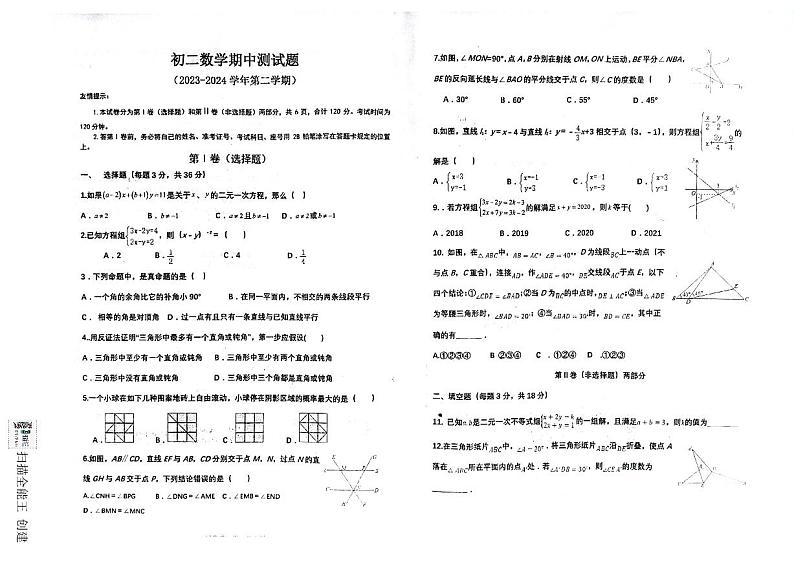 初二数学期中测试题
（2023-2024 学年第二学期）
友情提示：
1.本试卷分为第Ⅰ卷（选择题）和第Ⅱ卷（非选择题）两部分，共 6 页，合计 120 分。考试时间为
120 分钟。
2.答第Ⅰ卷前，务必将自己的姓名、准考证号、考试科目、座号用 2B 铅笔涂写在答题卡规定的位置
上。
第Ⅰ卷（选择题）
一、 选择题（每题 3 分，共 36 分）
1.如果(a-2)x+(b+1)y=11是关于 x、y 的二元一次方程，那么（ ）
A．a≠2 B．b≠-1 C．a≠2且b≠-1 D．a≠2或b≠-1
2.已知方程组{3x-2y=4 2x-y=2，则（x-y）⁻²=（ ）
A．2 B．1/2 C．4 D．1/4
3．下列命题中，是真命题的是（ ）
A．一个角的余角比它的补角小 90° B．在同一平面内，不相交的两条线段平行
C．相等的角是对顶角 D．过一点有且只有一条直线与已知直线平行
4..用反证法证明“三角形中最多有一个直角或钝角”，第一步应假设( )
A．三角形中至少有一个直角或钝角 B．三角形中至少有两个直角或钝角
C．三角形中没有直角或钝角 D．三角形中三个角都是直角或钝角
5.一个小球在如下几种图案地砖上自由滚动，小球停在阴影区域的概率最大的是（ ）
A． B． C． D．
6.如图，AB∥CD，直线 EF 与 AB、CD 分别交于点 M，N，过点 N 的直
线 GH 与 AB 交于点 P，下列结论错误的是（ ）
A.∠CNH＝∠BPG B．∠DNG＝∠AME C．∠EMB＝∠END
D．∠BMN＝∠MNC
7.如图，∠MON=90°，点 A，B 分别在射线 OM，ON 上运动，BE 平分∠NBA，
BE 的反向延长线与∠BAO 的平分线交于点 C，则∠C 的度数是（ ）
A．30° B．60° C．55° D．45°
8.如图，直线 l₁：y=x-4 与直线 l₂：y=-4/3x+3 相交于点（3，-1），则方程组{x/2-y/2=2 x+3y/4=9/4的
解是（ ）
A．{x=3 y=-1 B．{x=-1 y=-3 C．{x=-1 y=-3 D．{x=3 y=1
9.．若方程组{3x-2y=2k-3 2x+7y=3k-2的解满足x+y=2020，则k等于( )
A．2018 B．2019 C．2020 D．2021
10. 如图，在△ABC中，AB=AC，∠B=40°，D为线段BC上一动点（不
与点 B，C 重合），连接AD，作∠ADE=40°，DE交线段AC于点 E，以下
四个结论：①∠CDE=∠BAD；②当 D 为BC的中点时，DE⊥AC；③当△ADE
为等腰三角形时，∠BAD=20°；④当∠BAD=30°时，BD=CE，其中正
确的有______．
A.①②③④ B．②③④ C．①②④ D．①②③
第Ⅱ卷（非选择题）两部分
二、填空题（每题 3 分，共 18 分）
11. 已知a,b是二元一次不等式组{x+2y=k 2x+y=1的一组解，且满足a+b=3，则k的值为______
12.在三角形纸片ABC中，∠A=20°．将三角形纸片ABC沿DE折叠，使点 A
落在△ABC所在平面内的点A'处．若∠A'DB=30°，则∠CEA'的度数为
______．
扫描全能王 创建